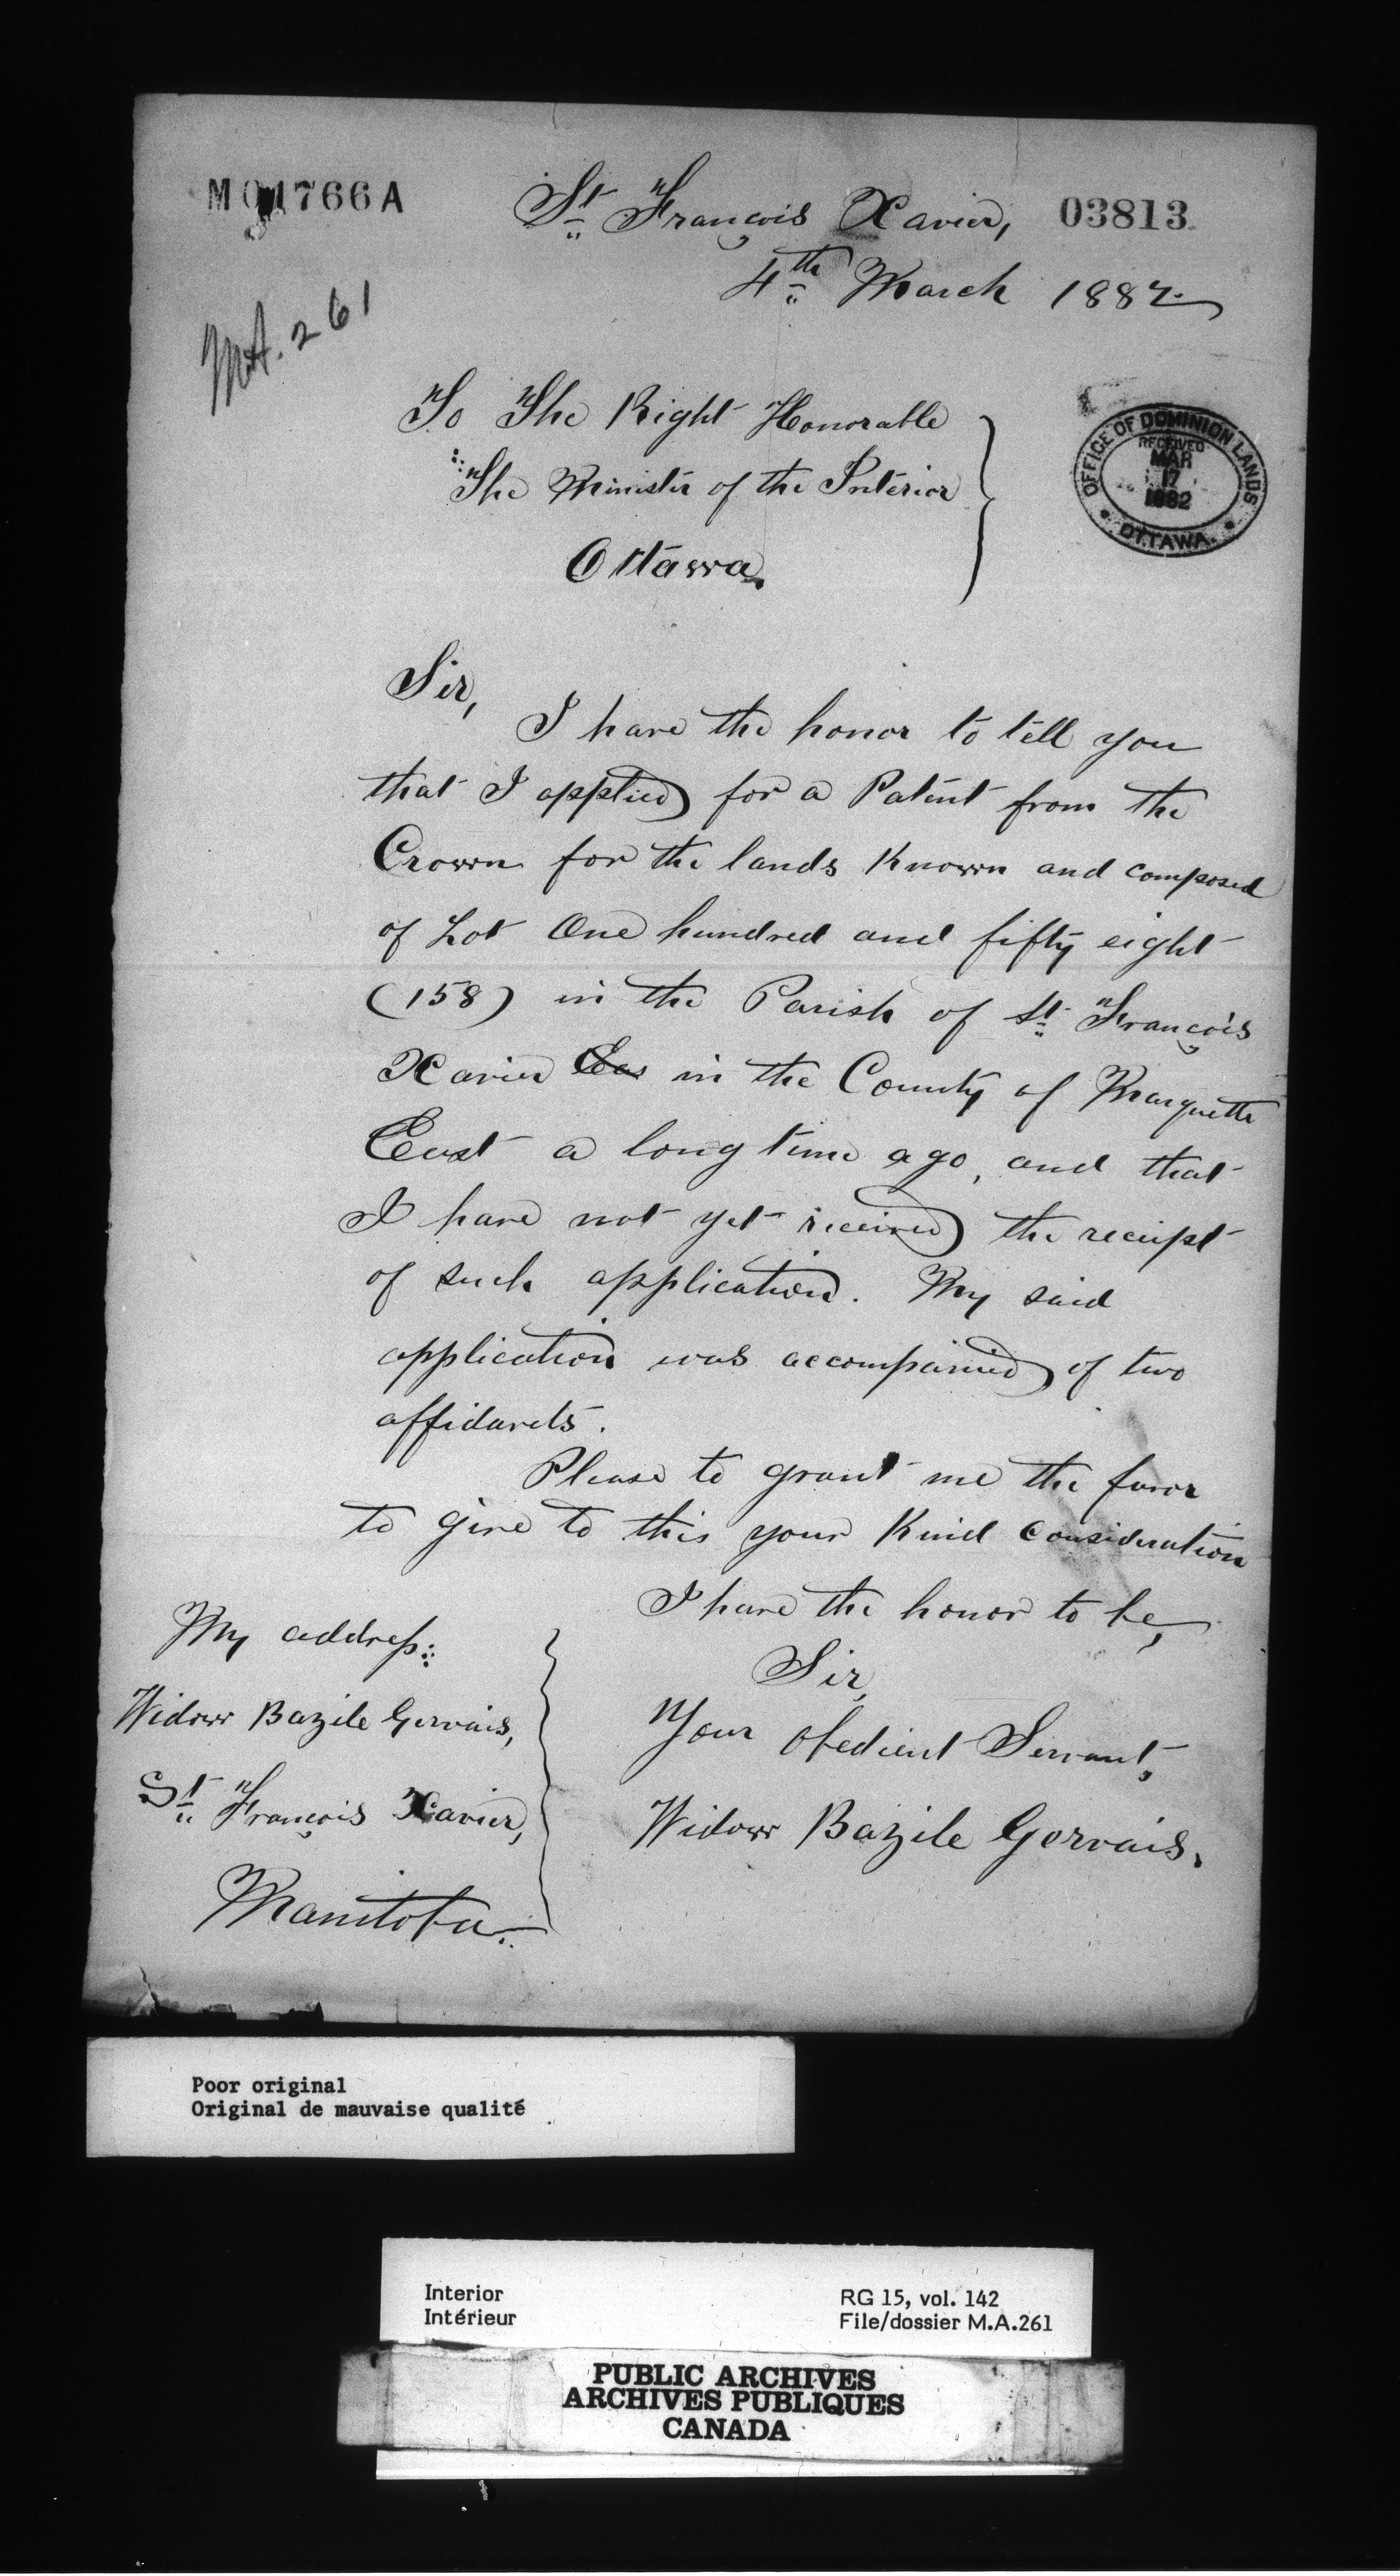 M 01766 A
St François Xavier, 03813
4th March 1882
M.A. 261
To The Right Honorable
The Minister of the Interior
Ottawa.
OFFICE OF DOMINION LANDS
RECEIVED
MAR
17
1882
OTTAWA
Sir,
I have the honor to tell you
that I applied for a Patent from the
Crown for the lands Known and composed
of Lot One hundred and fifty eight
(158) in the Parish of St François
Xavier Eas in the County of Marquette
East a long time ago, and that
I have not yet received the receipt
of such application. My said
application was accompanied of two
affidavits.
Please to grant me the favor
to give to this your Kind Consideration
I have the honor to be,
Sir,
Your Obedient Servant,
Widow Bazile Gervais.
My address:
Widow Bazile Gervais,
St François Xavier,
Manitoba.
Poor original
Original de mauvaise qualité
Interior
Intérieur
RG 15, vol. 142
File/dossier M.A.261
PUBLIC ARCHIVES
ARCHIVES PUBLIQUES
CANADA